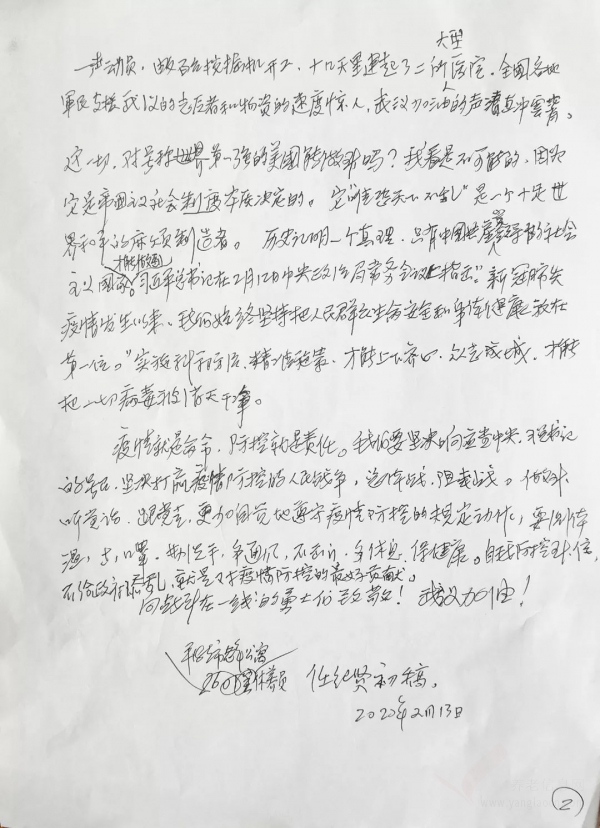 大型
一声动员,数百台挖掘机开工,十几天里建起了二所医院。全国各地
军民支援武汉的志愿者和物资的速度惊人,武汉加油的声潢直冲雲霄。
这一切,对号称世界第一强的美國能做到吗?我看是不可能的,因为
它是帝國主义社会制度本质决定的。它"唯恐天下不乱"是一个十足世
界和平的麻烦制造者。历史证明一个真理,只有中国共产党领导的社会
才能做到
主义國家。习近平总书记在2月12日中央政治局常务会议上指示"新冠肺炎
疫情发生以来,我们始终坚持把人民群众生命安全和身体健康放在
第一位。"实施科学防治、精准施策,才能上下齐心,众志成城,才能
把一切病毒消灭干净。
疫情就是命令,防控就是责任。我们要坚决响应党中央、习总书记
的号召,坚决打赢疫情防控的人民战争,总体战,阻击战。
听党话,跟党走,更加自觉地遵守疫情防控的规定动作,要测体
温,戴口罩,勤洗手,多通风,不出门,多休息,保健康。自我防控到位,
不给政府添乱,就是对疫情防控的最好贡献。
向战斗在一线的勇士们致敬!武汉加油!
任纪贤初稿。
2020年2月13日
2